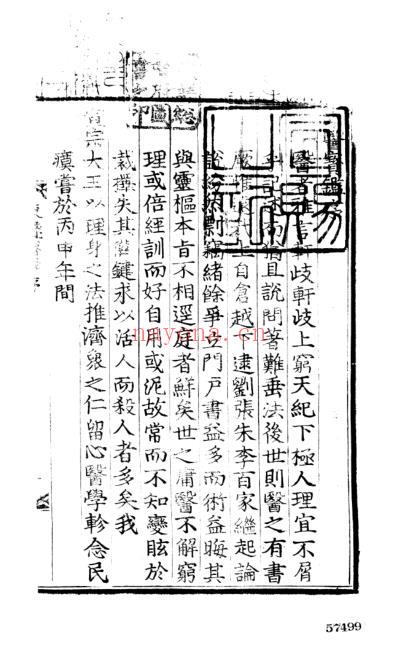 醫者雅言軒岐軒岐上窮天紀下極人理宜不屑
而猶且說問著難垂法後世則醫之有書
上自倉越下逮劉張朱李百家繼起論
說紛然剽竊緒餘爭立門戶書益多而術益晦其
與靈樞本旨不相逕庭者鮮矣世之庸醫不解窮
理或倍經訓而好自用或泥故常而不知變眩於
裁擇失其關鍵求以活人而殺人者多矣我
宣宗大王以理身之法推濟衆之仁留心醫學軫念民
瘼嘗於丙申年間
nayona.cn
57499